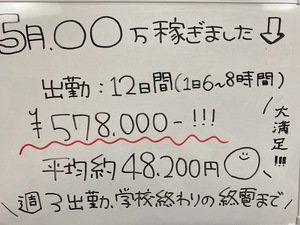 5月.〇〇万稼ぎました↓
出勤：12日間(1日6〜8時間)
¥578.000-!!!
大満足!!!
平均約48.200円
\週3出勤、学校終わりの終電まで/